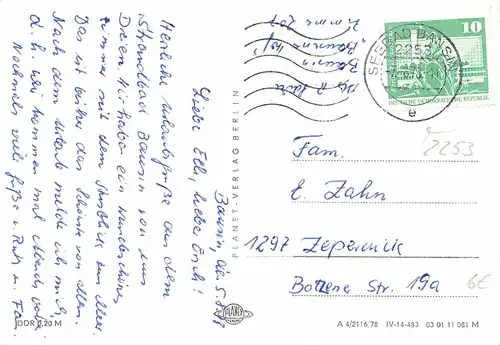 Bansin, die 5.8.78
Liebe Elli, liebe Erich!
Herzliche Urlaubsgrüße aus dem
Strandbad Bansin von uns
Dreien. Wir haben ein wunderschönes
Zimmer mit dem Ausblick aufs Meer.
Das ist bisher das Schönste von allem.
Nach dem Urlaub melde ich mich,
d. h. wir kommen mal abends vorbei.
Nochmals viele Grüße v. Ruth u. Fam.
DDR 0,20 M
PLANET-VERLAG BERLIN
PLANET
10
DEUTSCHE DEMOKRATISCHE REPUBLIK
SEEBAD BANSIN
2253
e
2253
Fam.
E. Zahn
1297 Zepernick
Bozener Str. 19a
6€
A 4/2116/78 IV-14-483 03 01 11 081 M